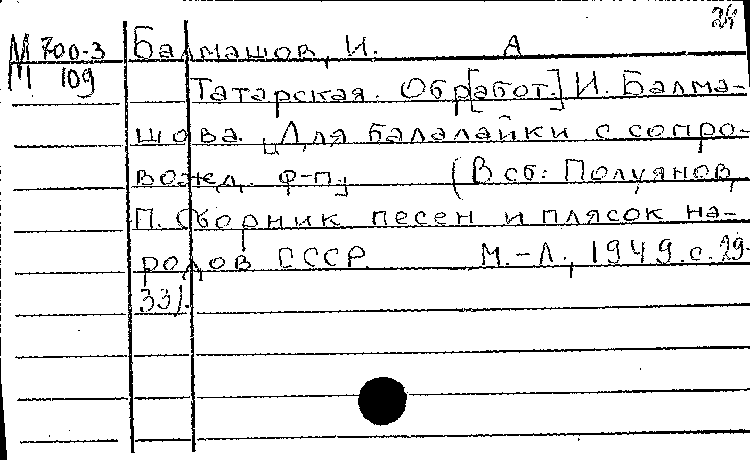 24
М 700-3 Балмашов, И. А
109 Татарская. Обр[абот.] И. Балма-
шова. [Для балалайки с сопро-
вожд. ф-п.] (В сб: Полуянов,
П. Сборник песен и плясок на-
родов СССР. М.-Л., 1949. с. 29-
33).